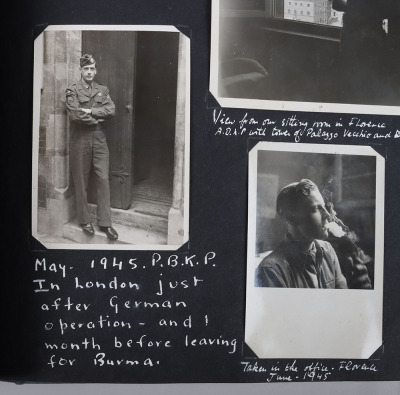 View from our sitting room in Florence
A.D.K.P with tower of Palazzo Vecchio and D
May. 1945. P.B.K.P.
In London just
after German
operation - and 1
month before leaving
for Burma.
Taken in the office - Florence
June - 1945